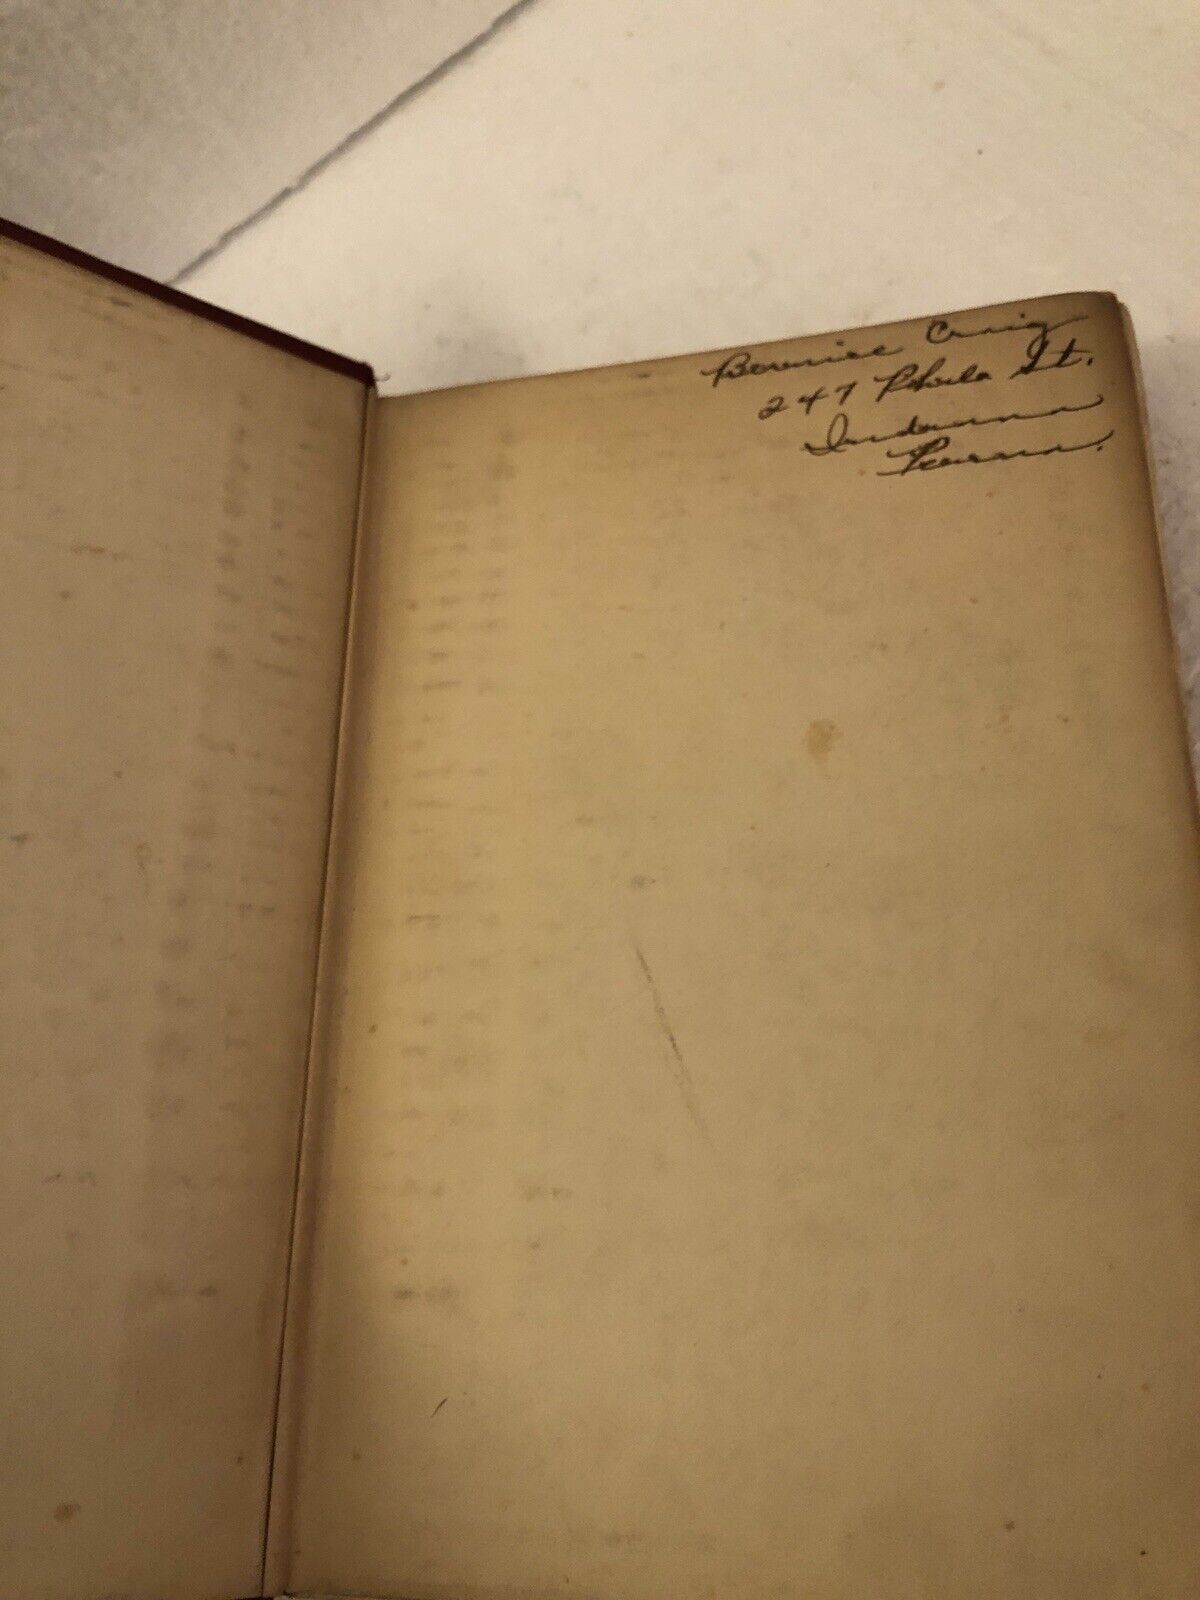 Bernice Craig
247 Phila St.
Indiana
Penna.